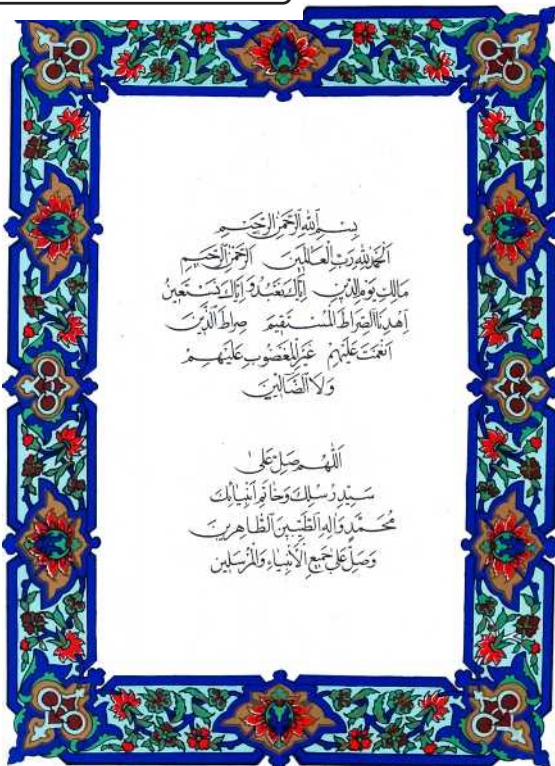 بِسْمِ اللهِ الرَّحْمٰنِ الرَّحِيمِ
اَلْحَمْدُ لِلّٰهِ رَبِّ الْعَالَمِينَ الرَّحْمٰنِ الرَّحِيمِ
مَالِكِ يَوْمِ الدِّينِ إِيَّاكَ نَعْبُدُ وَإِيَّاكَ نَسْتَعِينُ
اِهْدِنَا الصِّرَاطَ الْمُسْتَقِيمَ صِرَاطَ الَّذِينَ
أَنْعَمْتَ عَلَيْهِمْ غَيْرِ الْمَغْضُوبِ عَلَيْهِمْ
وَلَا الضَّالِّينَ
اَللّٰهُمَّ صَلِّ عَلَى
سَيِّدِ رُسُلِكَ وَخَاتَمِ أَنْبِيَائِكَ
مُحَمَّدٍ وَآلِهِ الطَّيِّبِينَ الطَّاهِرِينَ
وَصَلِّ عَلَى جَمِيعِ الْأَنْبِيَاءِ وَالْمُرْسَلِينَ